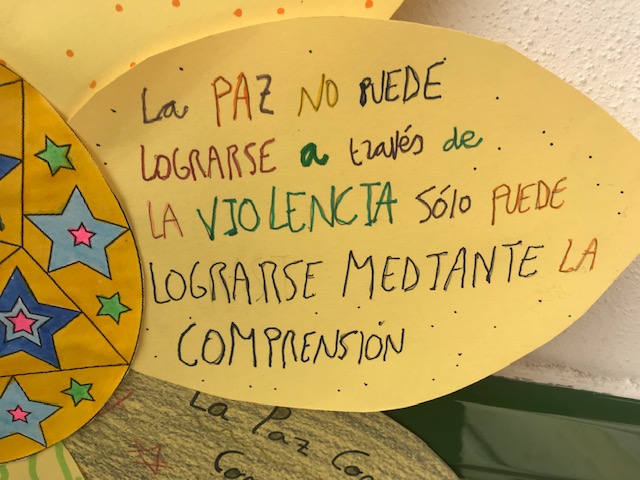 La PAZ NO PUEDE
LOGRARSE a través de
LA VIOLENCIA Sólo PUEDE
LOGRARSE MEDIANTE LA
COMPRENSIÓN
La Paz Co
Co